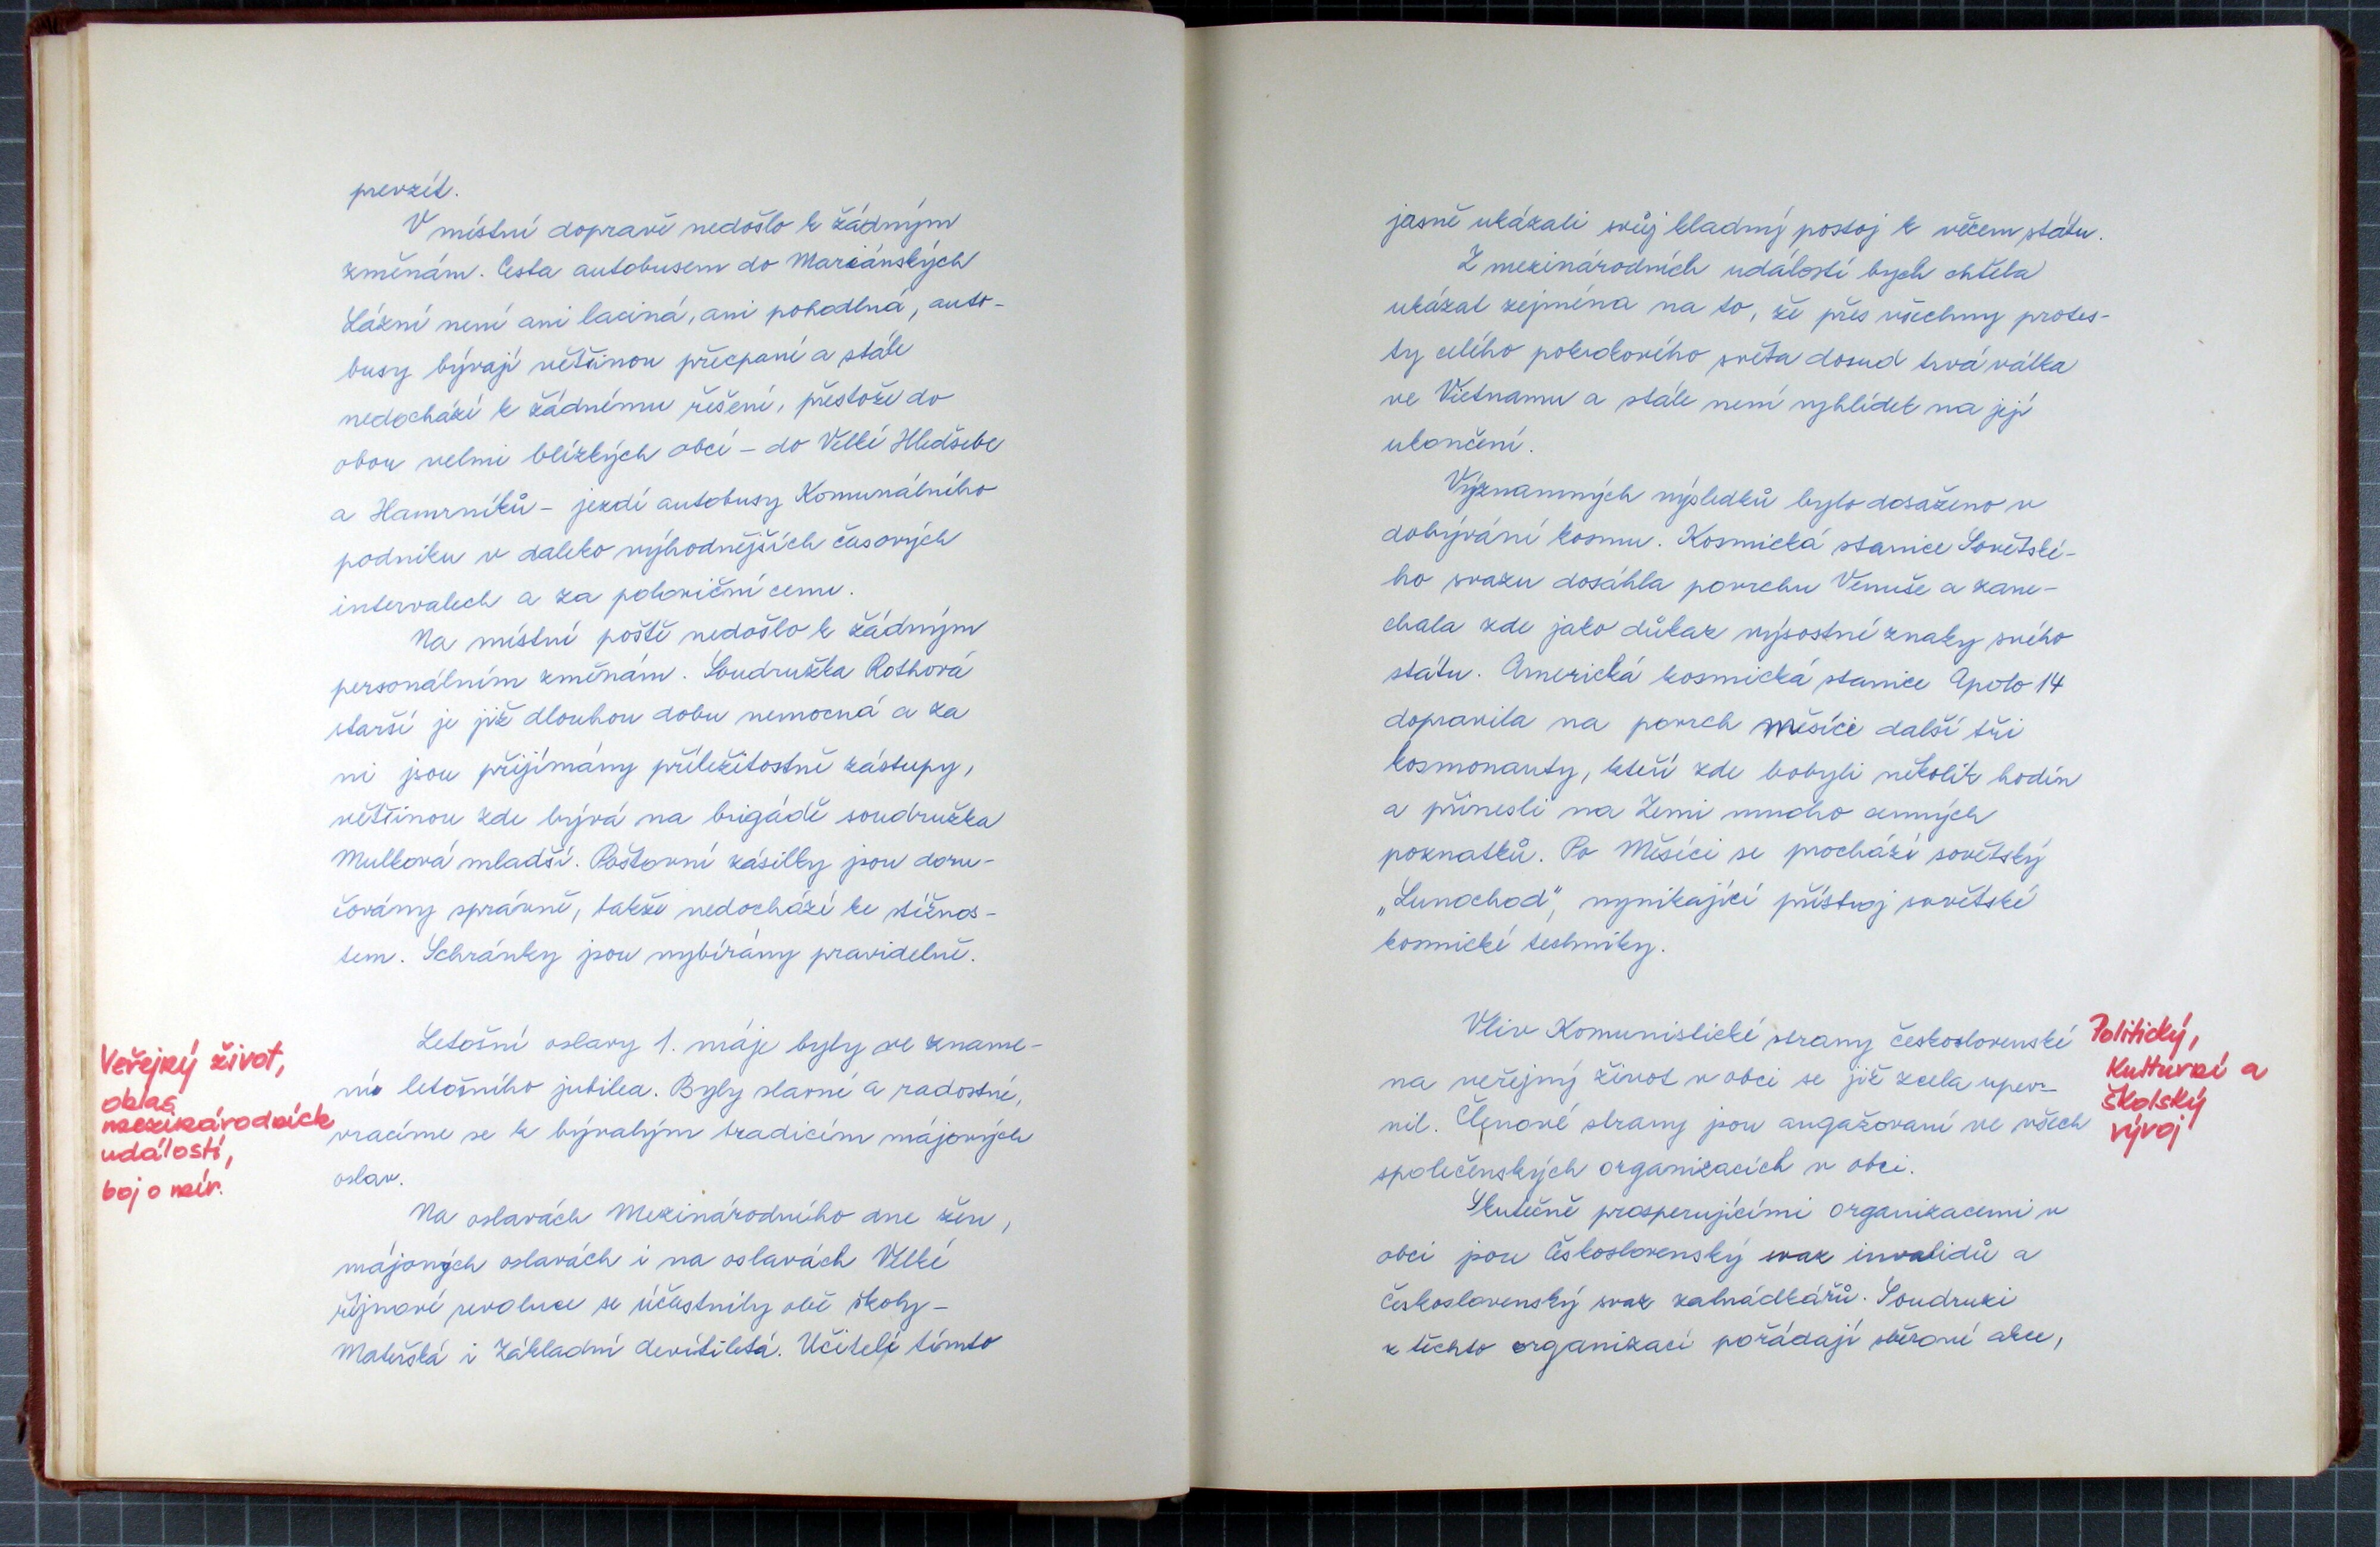 prevzít.
V místní dopravě nedošlo k žádným
změnám. Cesta autobusem do Mariánských
Lázní není ani laciná, ani pohodlná, auto-
busy bývají většinou přecpané a stále
nedochází k žádnému řešení, přestože do
obou velmi blízkých obcí - do Velké Hleďsebe
a Hamrníků - jezdí autobusy Komunálního
podniku v daleko výhodnějších časových
intervalech a za poloviční cenu.
Na místní poště nedošlo k žádným
personálním změnám. Soudružka Rothová
starší je již dlouhou dobu nemocná a za
ni jsou přijímány příležitostně zástupy,
většinou zde bývá na brigádě soudružka
Mulková mladší. Poštovní zásilky jsou doru-
čovány správně, takže nedochází ke stížnos-
tem. Schránky jsou vybírány pravidelně.
Veřejný život,
ohlas
mezinárodních
událostí,
boj o mír.
Letošní oslavy 1. máje byly ve zname-
ní letošního jubilea. Byly slavné a radostné,
vracíme se k bývalým tradicím májových
oslav.
Na oslavách Mezinárodního dne žen,
májových oslavách i na oslavách Velké
říjnové revoluce se účastnily obě školy -
Mateřská i Základní devítiletá. Učitelé tímto
jasně ukázali svůj kladný postoj k věcem státu.
Z mezinárodních událostí bych chtěla
ukázat zejména na to, že přes všechny protes-
ty celého pokrokového světa dosud trvá válka
ve Vietnamu a stále není vyhlídek na její
ukončení.
Významných výsledků bylo dosaženo v
dobývání kosmu. Kosmická stanice Sovětské-
ho svazu dosáhla povrchu Venuše a zane-
chala zde jako důkaz výsostné znaky svého
státu. Americká kosmická stanice Apolo 14
dopravila na povrch Měsíce další tři
kosmonauty, kteří zde pobyli několik hodin
a přinesli na Zemi mnoho cenných
poznatků. Po Měsíci se prochází sovětský
„Lunochod“, vynikající přístroj sovětské
kosmické techniky.
Politický,
kulturní a
školský
vývoj
Vliv Komunistické strany československé
na veřejný život v obci se již zcela upev-
nil. Členové strany jsou angažovaní ve všech
společenských organizacích v obci.
Skutečně prosperujícími organizacemi v
obci jsou Československý svaz invalidů a
Československý svaz zahrádkářů. Soudruzi
z těchto organizací pořádají sběrové akce,